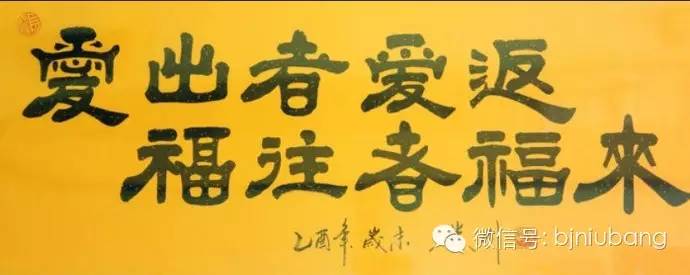 愛出者爱返
福往者福來
乙酉年歲末
微信号: bjniubang